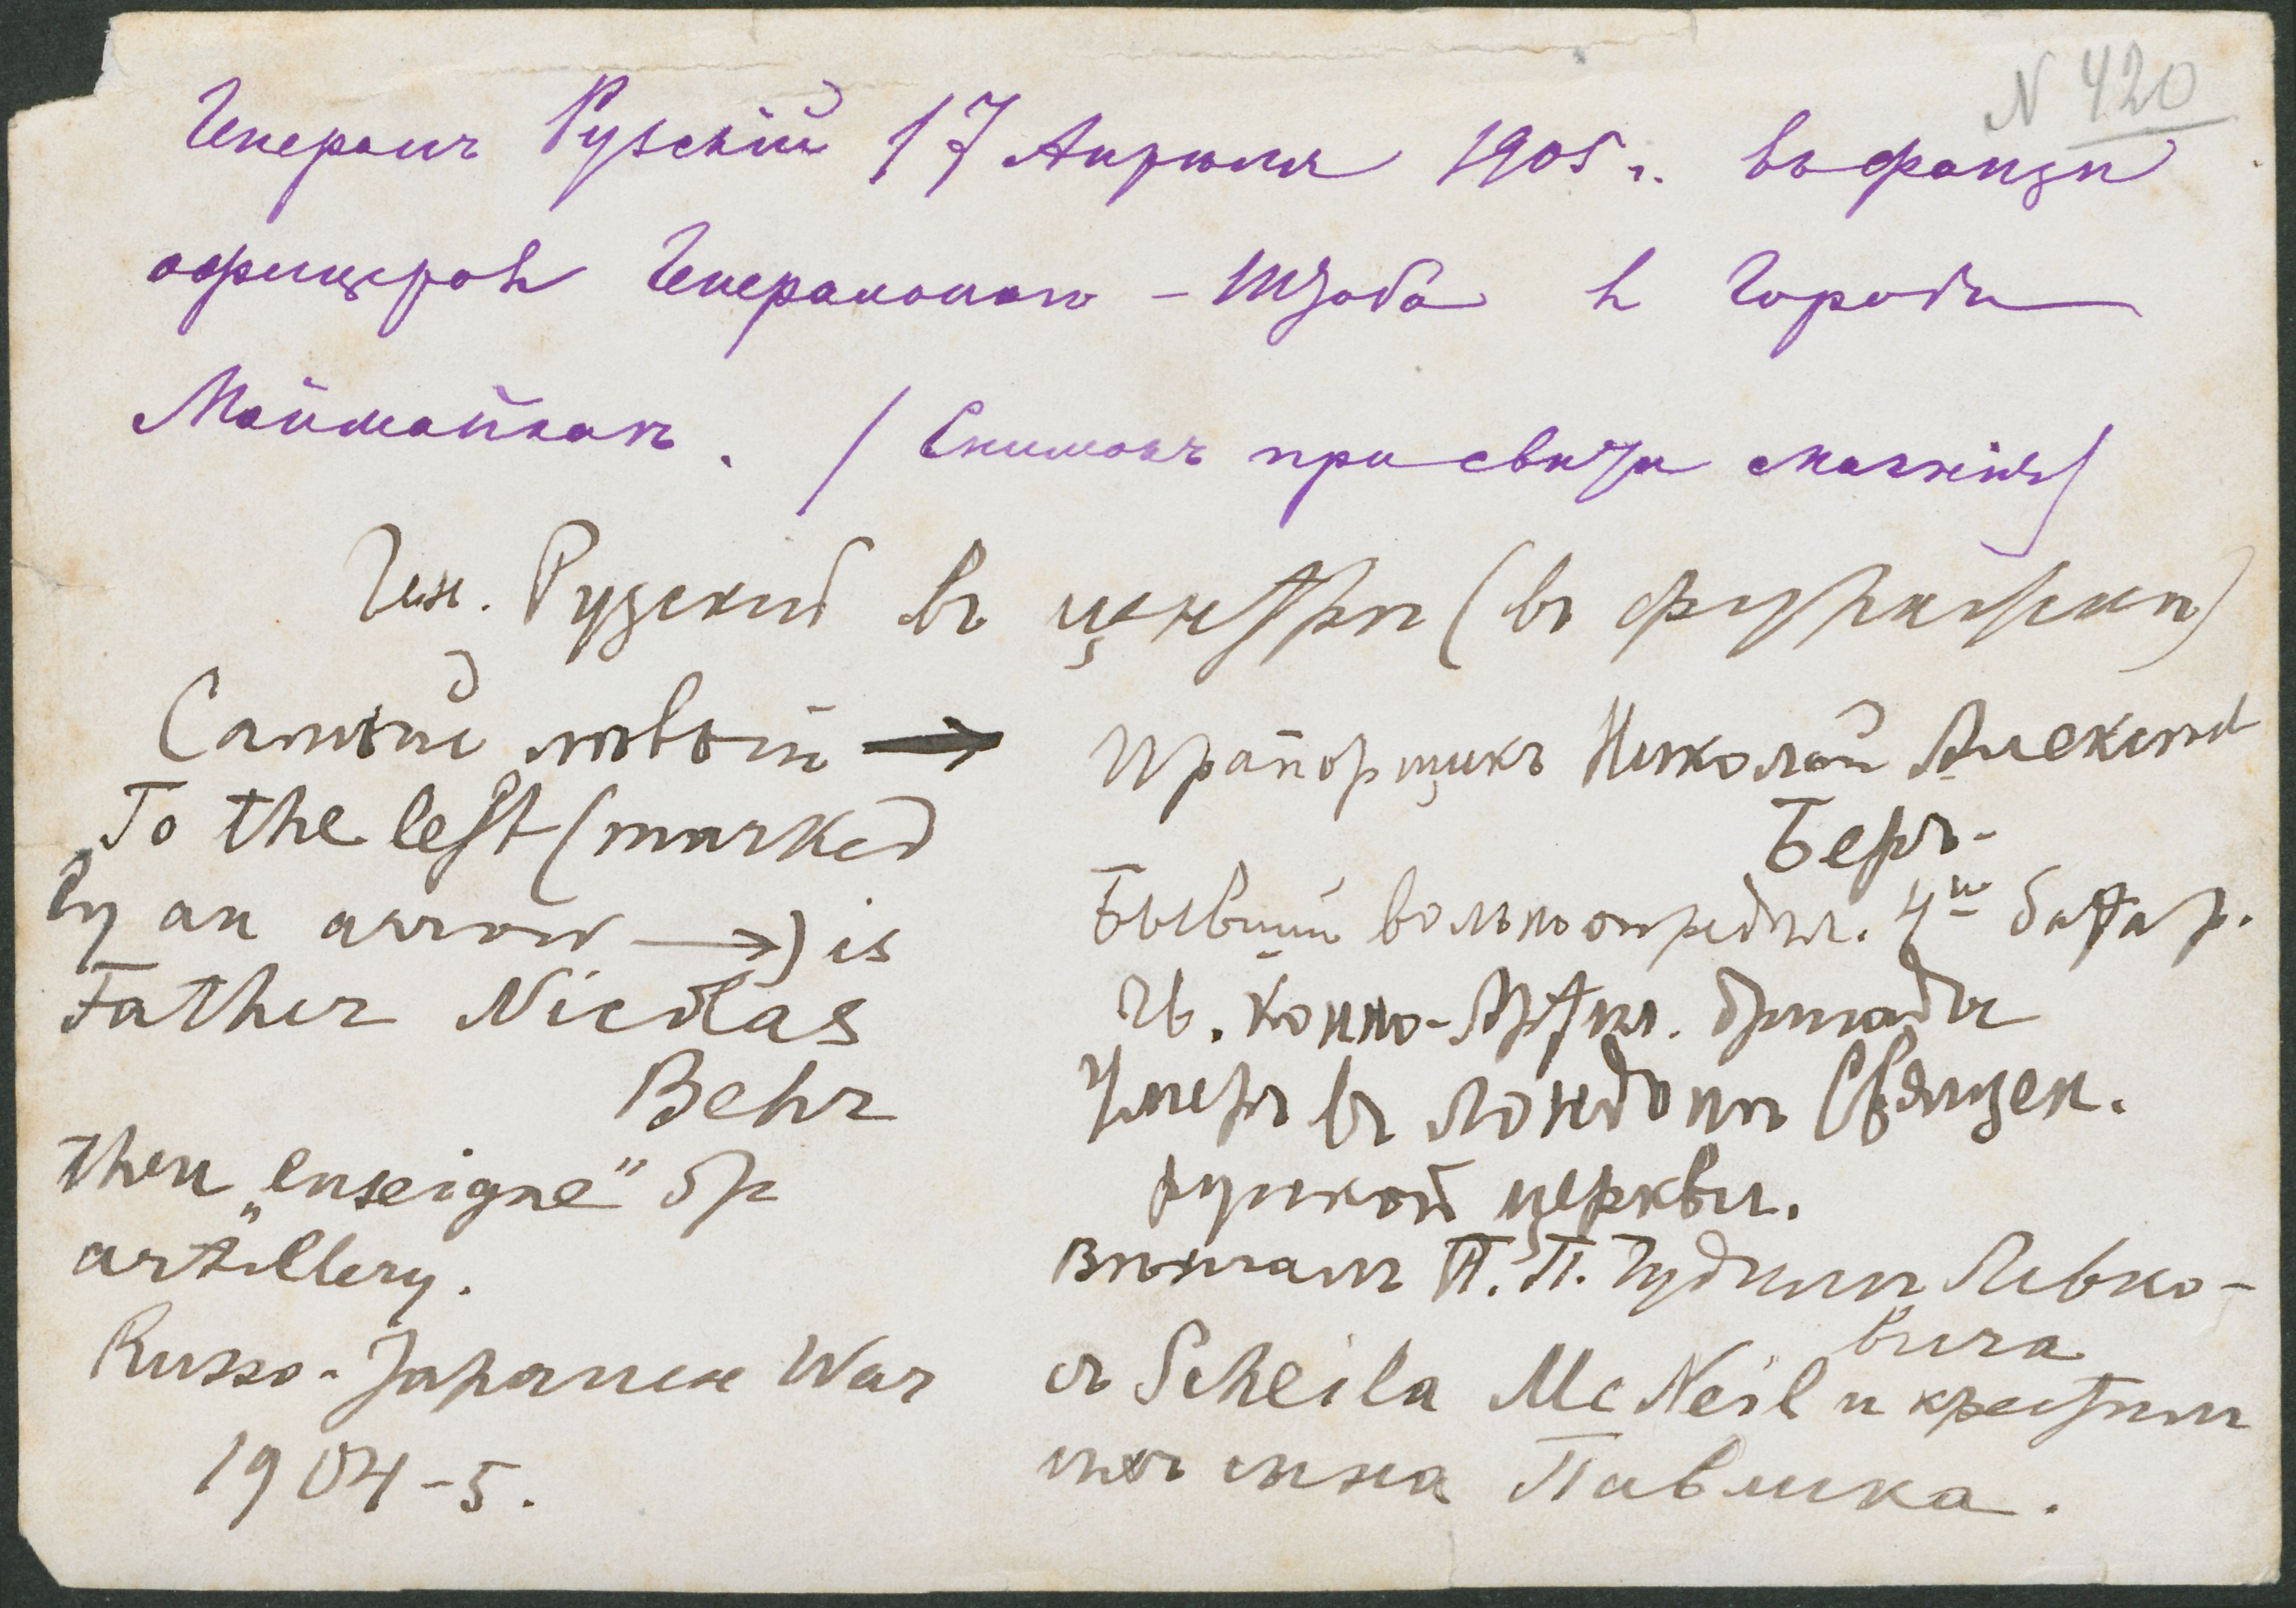 N 420
Генералъ Рузскій 17 Апрѣля 1905 г. въ фанзѣ
офицеров Генеральнаго - Штаба в городѣ
Маймайкаѣ. (Снимокъ при свѣтѣ магнія)
Ген. Рузский въ центрѣ (въ фуражкѣ)
Самый лѣвый → прапорщикъ Николай Александ
Беръ-
To the left (marked
by an arrow →) is
Father Nicolas
Behr
then „enseigne" of
artillery.
Russo-Japanese War
1904-5.
Бывший вольноопредѣл. 4й батар.
Гв. Конно-Артил. бригады
Умеръ въ Лондонѣ Священ.
русской церкви.
Вѣнчалъ П. П. Гудимъ Левко-
вича
съ Scheila McNeil и крестилъ
ихъ сына Павлика.